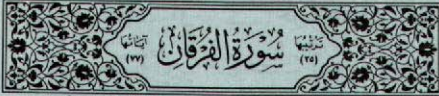 ترتيبها
(٢٥)
سُورَةُ الْفُرْقَانِ
آياتها
(٧٧)